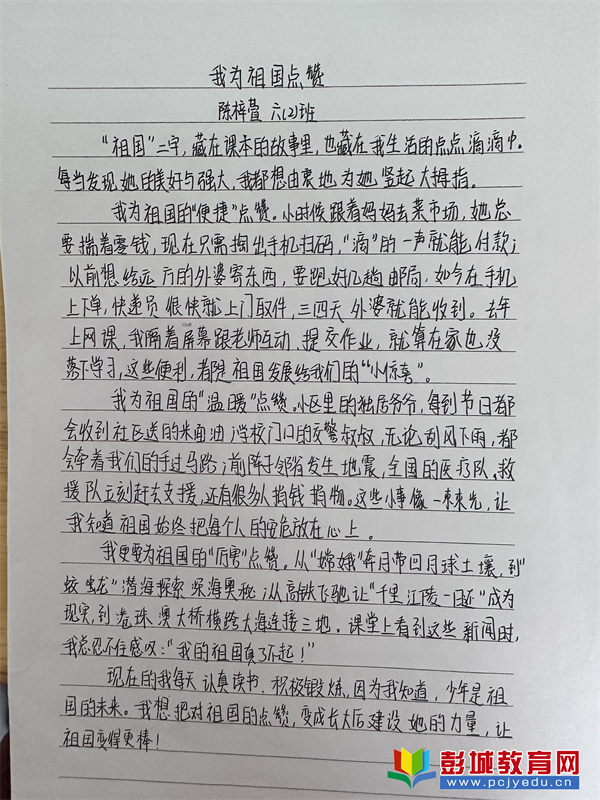 我为祖国点赞
陈梓萱 六(2)班
“祖国”二字,藏在课本的故事里,也藏在我生活的点点滴滴中。
每当发现她的美好与强大,我都想由衷地为她竖起大拇指。
我为祖国的“便捷”点赞。小时候跟着妈妈去菜市场,她总
要揣着零钱,现在只需掏出手机扫码,“滴”的一声就能付款;
以前想给远方的外婆寄东西,要跑好几趟邮局,如今在手机
上下单,快递员很快就上门取件,三四天外婆就能收到。去年
上网课,我隔着屏幕跟老师互动、提交作业,就算在家也没
落下学习,这些便利,都是祖国发展给我们的“小惊喜”。
我为祖国的“温暖”点赞。小区里的独居爷爷,每到节日都
会收到社区送的米面油;学校门口的交警叔叔,无论刮风下雨,都
会牵着我们的手过马路;前阵子邻省发生地震,全国的医疗队、救
援队立刻赶去支援,还有很多人捐钱捐物。这些小事像一束束光,让
我知道祖国始终把每个人的安危放在心上。
我更要为祖国的“厉害”点赞。从“嫦娥”奔月带回月球土壤,到“
蛟龙”潜海探索深海奥秘;从高铁飞驰让“千里江陵一日还”成为
现实,到港珠澳大桥横跨大海连接三地。课堂上看到这些新闻时,
我总忍不住感叹:“我的祖国真了不起!”
现在的我每天认真读书、积极锻炼,因为我知道,少年是祖
国的未来。我想把对祖国的点赞,变成长大后建设她的力量,让
祖国变得更棒!
彭城教育网
www.pcjyedu.cn